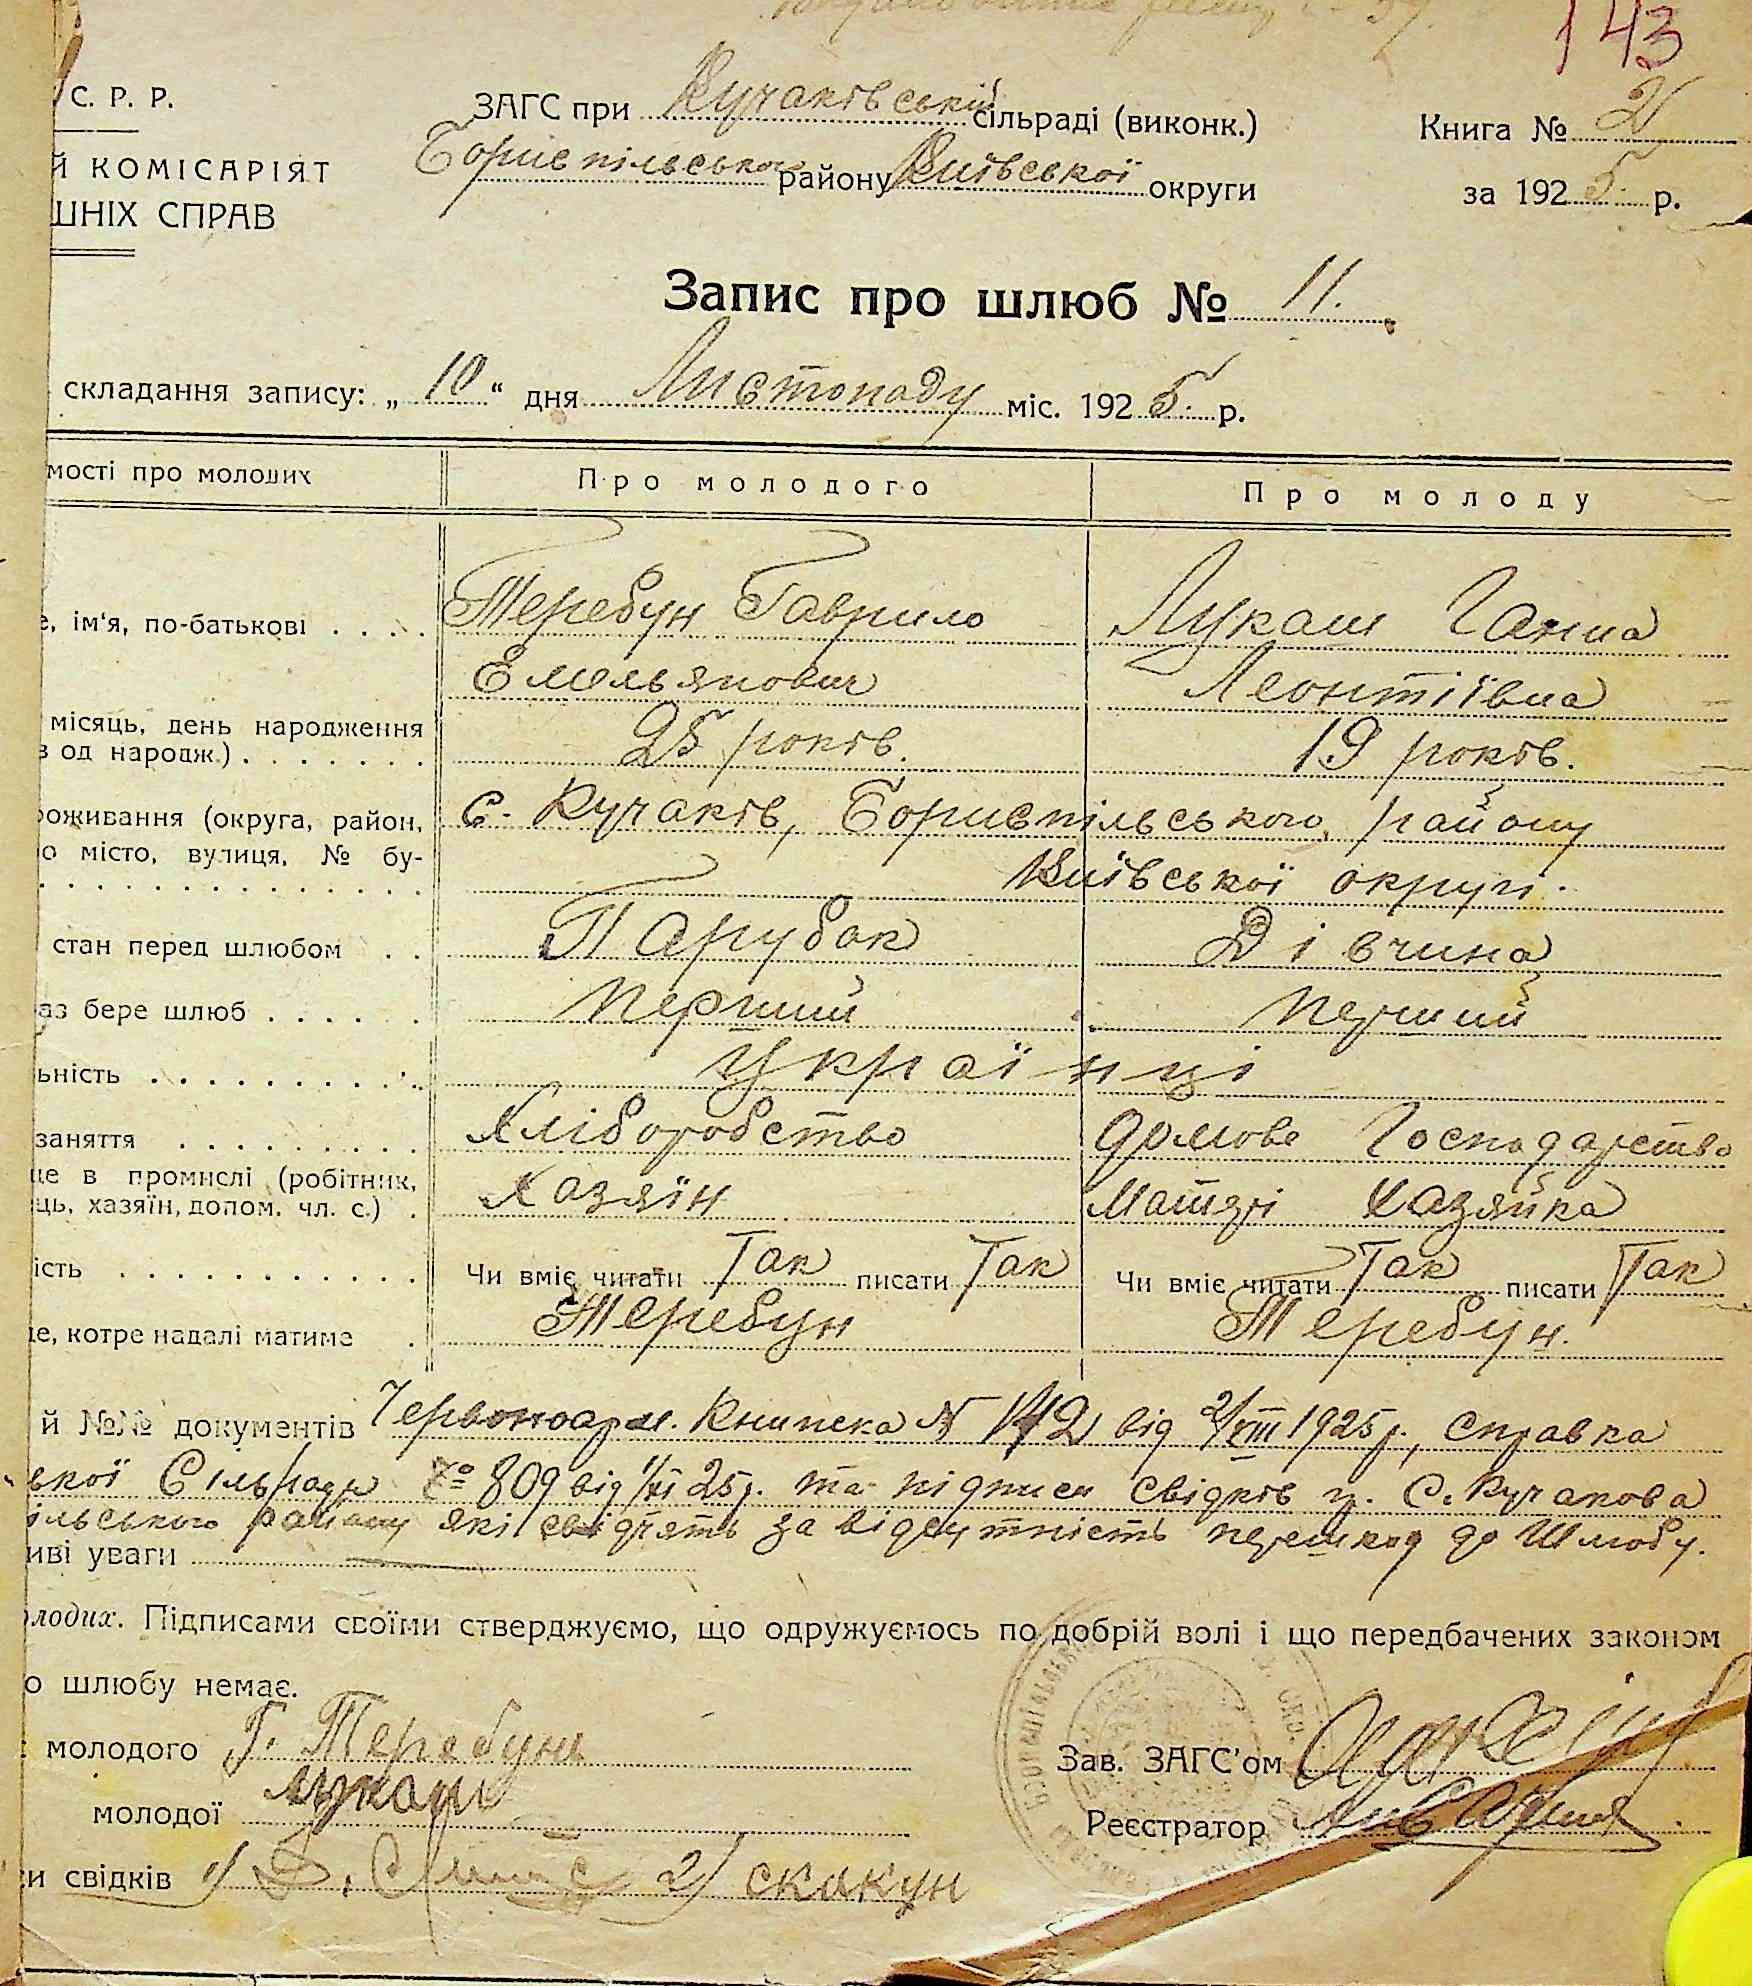 143
С. Р. Р.
ЗАГС при Кучаківській сільраді (виконк.)
Книга № 2
Й КОМІСАРІЯТ
Бориспільського району Київської округи
за 1925 р.
ШНІХ СПРАВ
Запис про шлюб № 11.
складання запису: „ 10 “ дня Листопаду міс. 1925. р.
мості про молодих Про молодого Про молоду
е, ім'я, по-батькові . . . . Теребун Гаврило Лукаш Ганна
Емельянович Леонтіївна
місяць, день народження 25 років. 19 років.
в од народж.) . . . . . . .
роживання (округа, район, с. Кучаків, Бориспільського, району
о місто, вулиця, № бу- Київської округи.
стан перед шлюбом . . Парубок Дівчина
аз бере шлюб . . . . . . Перший Перший
ьність . . . . . . . . . . Українці
заняття . . . . . . . . . Хліборобство Домове Господарство
це в промислі (робітник,
ць, хазяїн, допом. чл. с.) . Хазяїн Матері Хазяйка
ість . . . . . . . . . . . Чи вміє читати Так писати Так Чи вміє читати Так писати Так
це, котре надалі матиме . Теребун Теребун.
й №№ документів Червоноарм. Книжка № 142 від 2/VIII 1925 р., справка
ької Сільради № 809 від 1/XI 25 р. та підписи свідків гр. с. Кучакова
ільського району які свідчять за відсутність перешкод до Шлюбу.
иві уваги
олодих. Підписами своїми стверджуємо, що одружуємось по добрій волі і що передбачених законом
о шлюбу немає.
молодого Г. Теребунь
Зав. ЗАГС'ом
молодої Лукаш
Реєстратор
и свідків 1) Д. 2) скакун